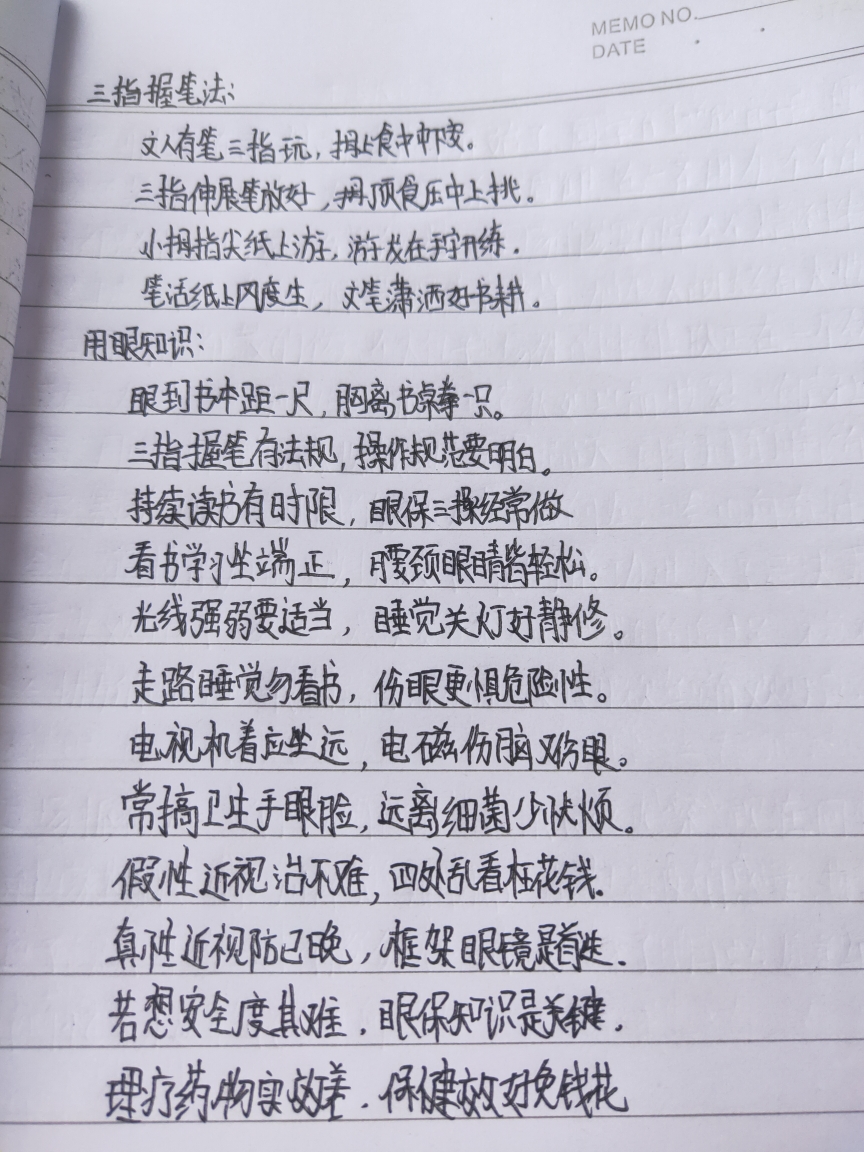 MEMO NO.
DATE
三指握笔法：
文人有笔三指玩，拇上食中中下变。
三指伸展笔放好，拇顶食压中上挑。
小拇指尖纸上游，游龙在手字开练.
笔活纸上风度生，文笔潇洒好书耕。
用眼知识：
眼到书本距一尺，胸离书桌拳一只。
三指握笔有法规，操作规范要明白。
持续读书有时限，眼保三操经常做
看书学习坐端正，腰颈眼睛皆轻松。
光线强弱要适当，睡觉关灯好静修。
走路睡觉勿看书，伤眼更惧危险性。
电视机着应坐远，电磁伤脑又伤眼。
常搞卫生手眼脸，远离细菌少忧烦。
假性近视治不难，四处乱看枉花钱.
真性近视防已晚，框架眼镜是首选.
若想安全度其难.眼保知识是关键.
理疗药物实效差.保健效好免钱花